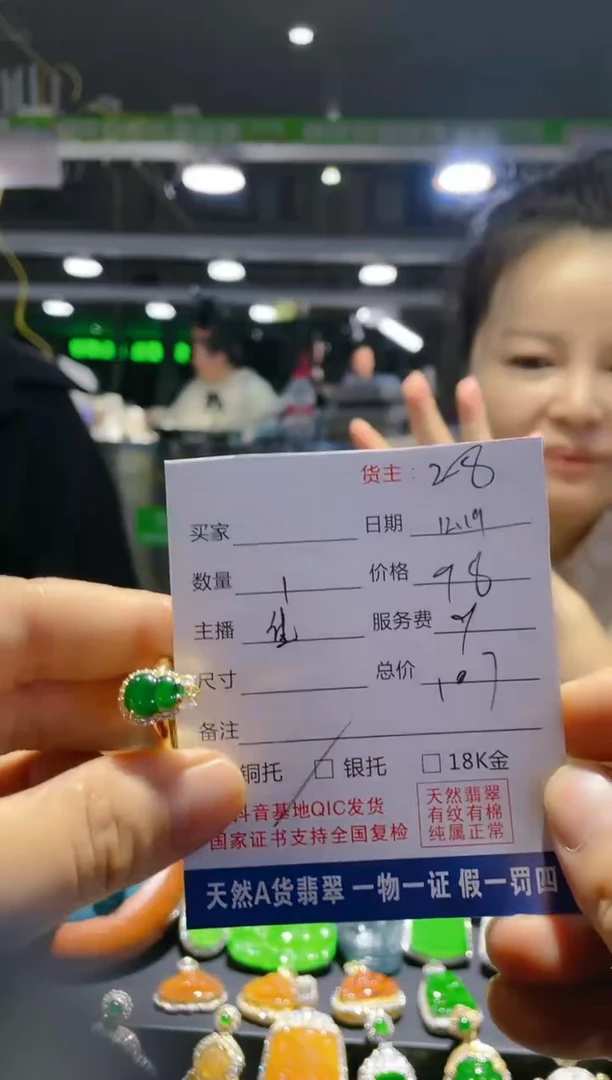 货主：28
买家 日期 12.19
数量 1 价格 98
主播 服务费 9
尺寸 总价 107
备注
铜托 □ 银托 □ 18K金
抖音基地QIC发货
国家证书支持全国复检
天然翡翠
有纹有棉
纯属正常
天然A货翡翠 一物一证 假一罚四